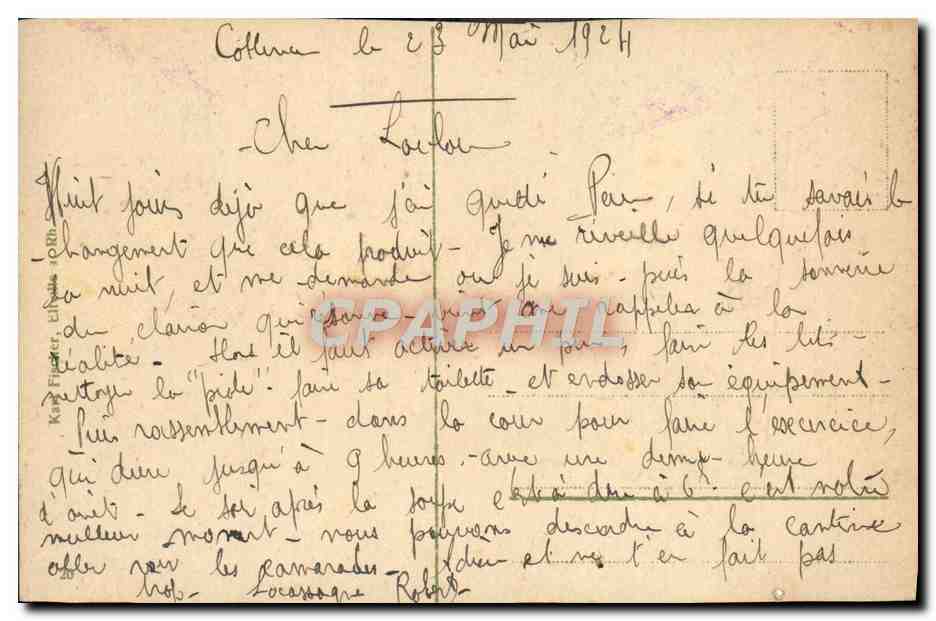 le 23 Mai 1924
Cher Loulou
Huit jours déjà que j'ai quitté, si tu savais le
changement que cela produit - Je me réveille quelquefois
la nuit, et me demande ou je suis - puis la sonnerie
du clairon qui résonne - vient me rappeler à la
réalité - Alors il faut activer un peu, faire les lits -
nettoyer la "piole" - faire sa toilette et endosser son équipement -
Puis rassemblement - dans la cour pour faire l'exercice,
qui dure jusqu'à 9 heures - avec une demi-heure
d'arrêt - Le soir après la soupe c'est à dire à 6h c'est notre
meilleur moment - nous pouvons descendre à la cantine
aller voir les camarades - Adieu et ne t'en fait pas
trop - Lacassagne Robert -
CPAPHIL
Karl Fischer, Eltville a. Rh.
20